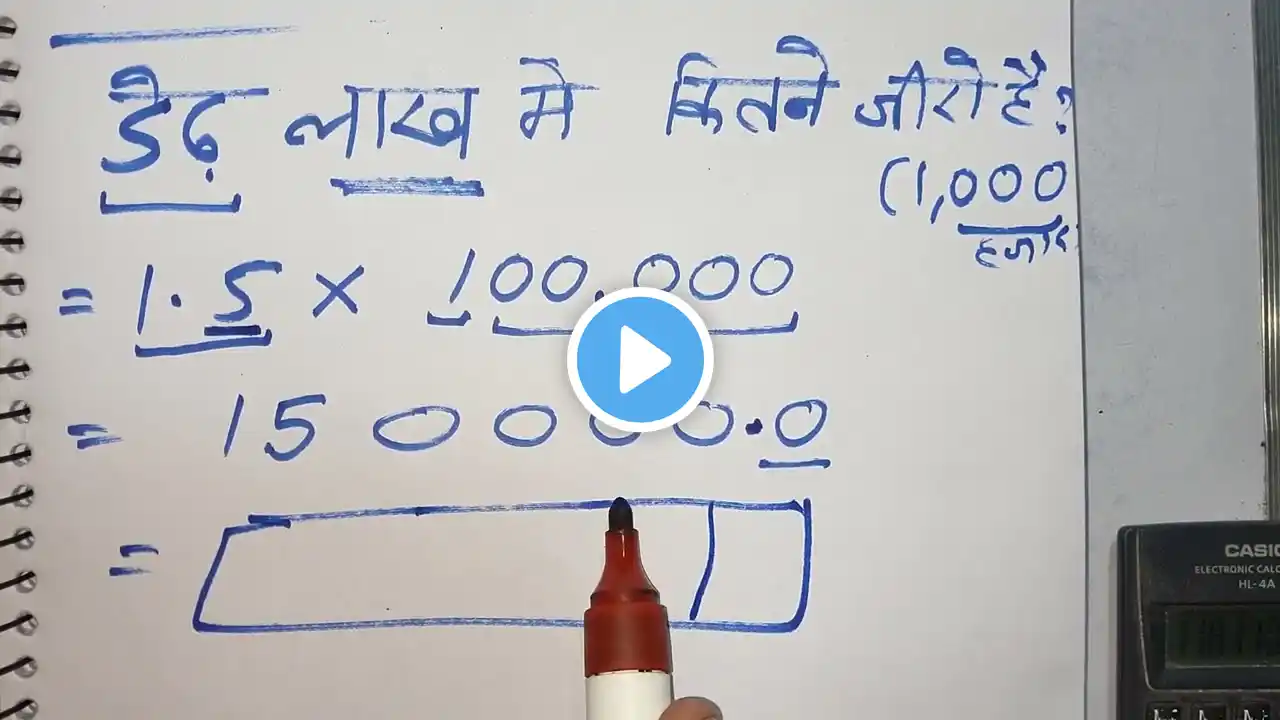 डेढ़ लाख मे कितने जीरो है?
(1,000
हजार
= 1.5 × 100,000
= 150000.0
=
CASIO
ELECTRONIC CALC
HL-4A